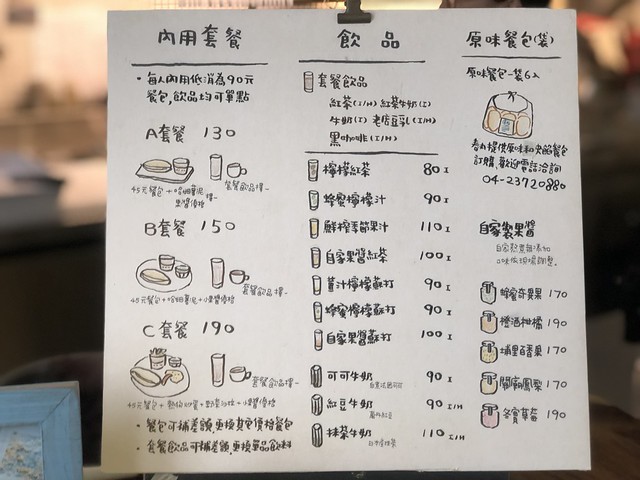 內用套餐
・每人內用低消為90元
餐包,飲品均可單點
A套餐 130
45元餐包+哈姆薯泥
套餐飲品擇一
B套餐 150
45元餐包+哈姆薯泥+小漿優格
套餐飲品擇一
C套餐 190
套餐飲品擇一
・餐包可補差額,更換其他價格餐包
・套餐飲品可補差額,更換單品飲料
飲品
套餐飲品
紅茶(I/H) 紅茶牛奶(I)
牛奶(I) 老店豆乳(I/H)
黑咖啡(I/H)
檸檬紅茶 80 I
蜂蜜檸檬汁 90 I
鮮榨季節果汁 110 I
自家果醬紅茶 100 I
薑汁檸檬蘇打 90 I
蜂蜜檸檬蘇打 90 I
自家果醬蘇打 100 I
可可牛奶 90 I
紅豆牛奶 90 I/H
萬丹紅豆
抹茶牛奶 110 I/H
原味餐包(袋)
原味餐包一袋6入
訂購,歡迎電話洽詢
04-23720880
自家製果醬
蜂蜜奇異果 170
橙酒柑橘 190
埔里百香果 170
關廟鳳梨 170
冬賞草莓 190